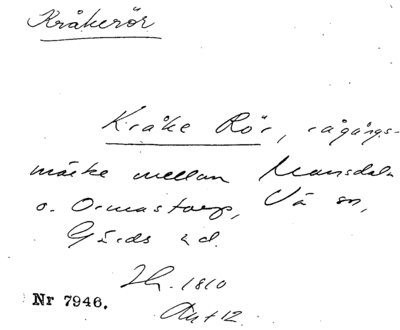 Kråkerör
Kråke Rör, rågångs-
märke mellan Mansdala
o. Ormastorp, Vä sn,
Gärds hd.
1810
Nr 7946.